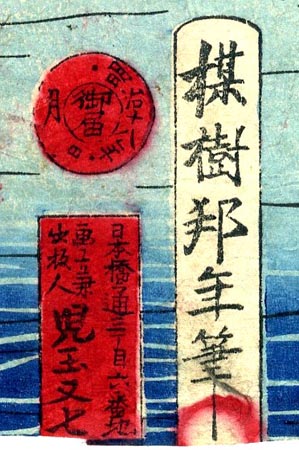 楳樹邦年筆
明治
年
月
日
御届
日本橋通三丁目六番地
画工兼
出板人
兒玉又七